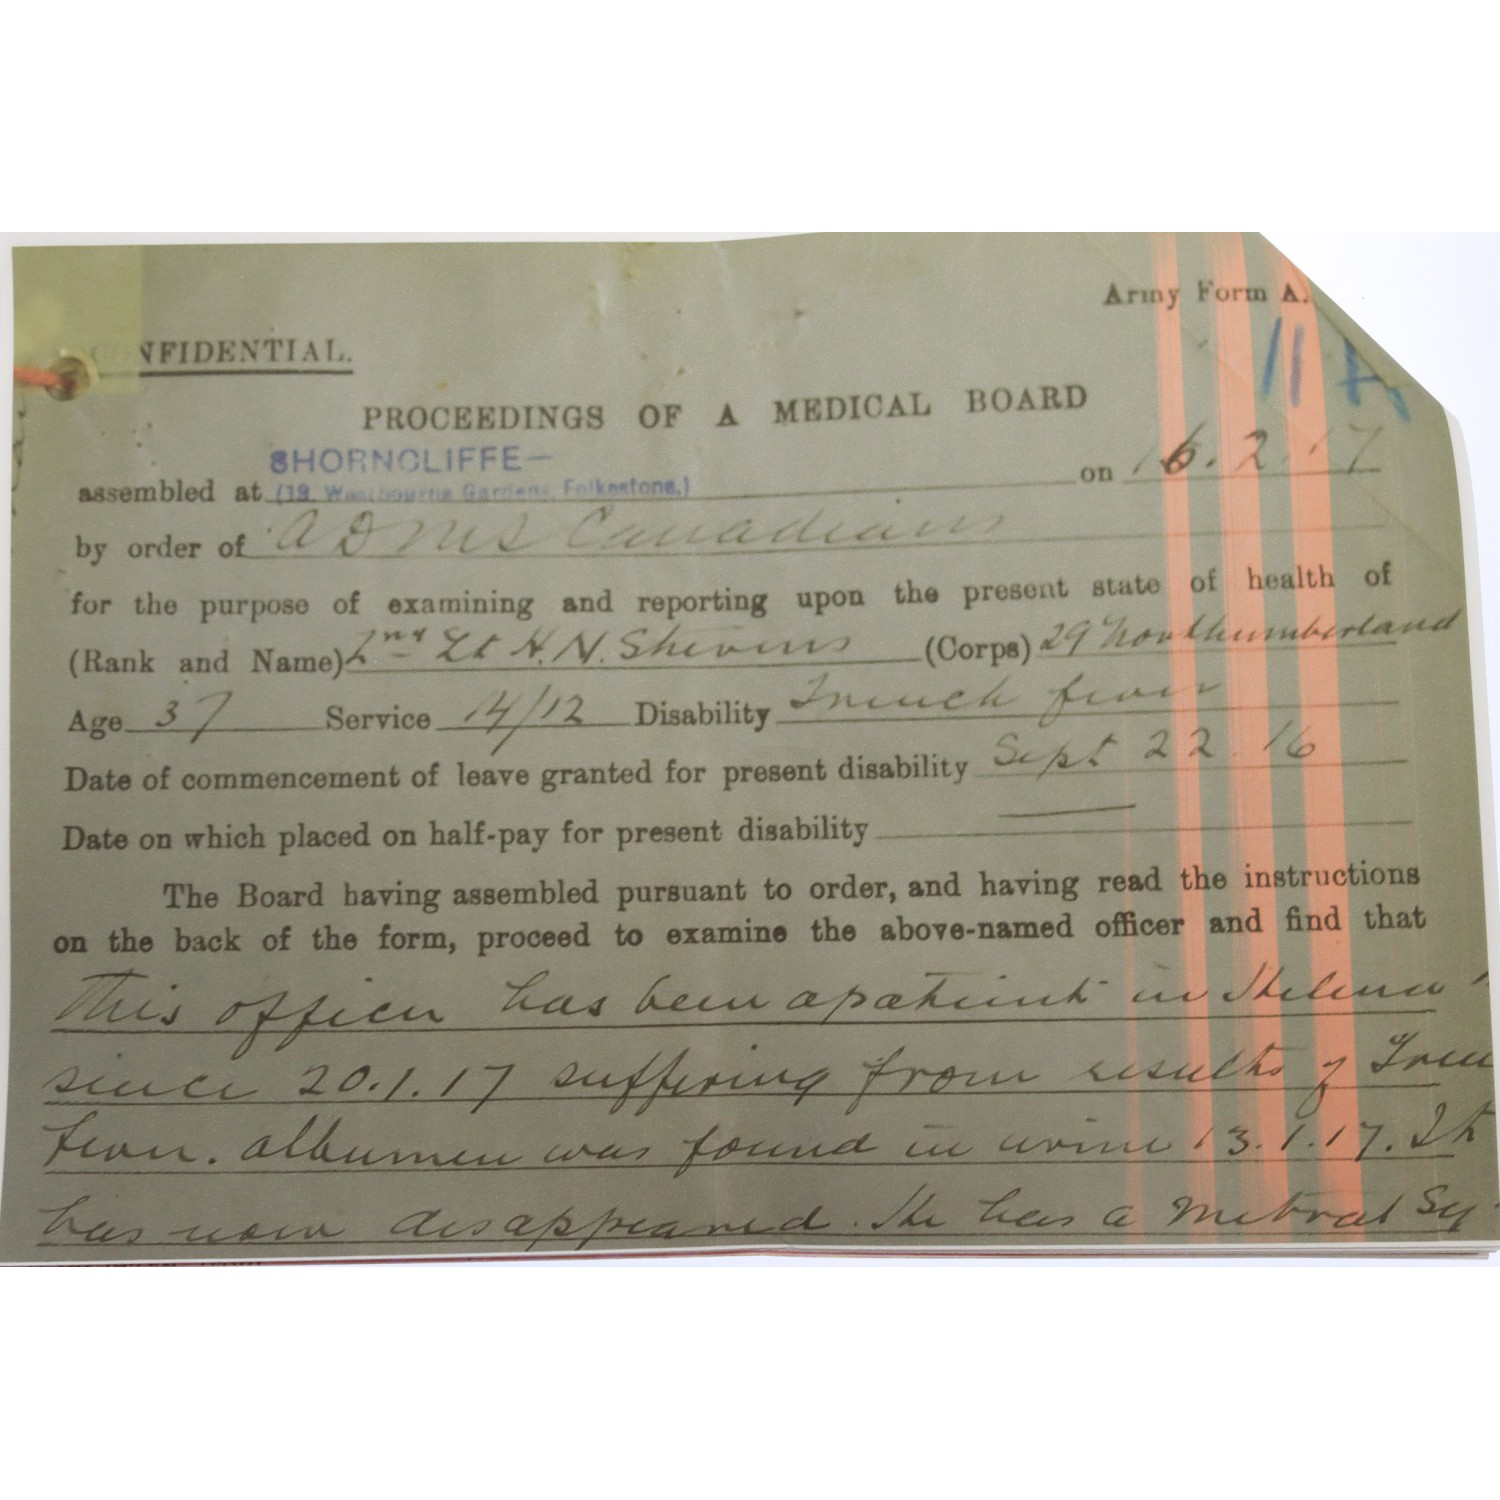 Army Form A.
11 A
CONFIDENTIAL.
PROCEEDINGS OF A MEDICAL BOARD
SHORNCLIFFE—
assembled at (19, Westbourne Gardens, Folkestone,) on 16.2.17
by order of ADMS Canadians
for the purpose of examining and reporting upon the present state of health of
(Rank and Name) 2nd Lt H.N. Stevens (Corps) 29 Northumberland
Age 37 Service 14/12 Disability Trench fever
Date of commencement of leave granted for present disability Sept 22.16
Date on which placed on half-pay for present disability —
The Board having assembled pursuant to order, and having read the instructions
on the back of the form, proceed to examine the above-named officer and find that
This officer has been a patient in Helena
since 20.1.17 suffering from results of Tren
fever. albumen was found in urine 13.1.17. It
has now disappeared. He has a Mitral Sy